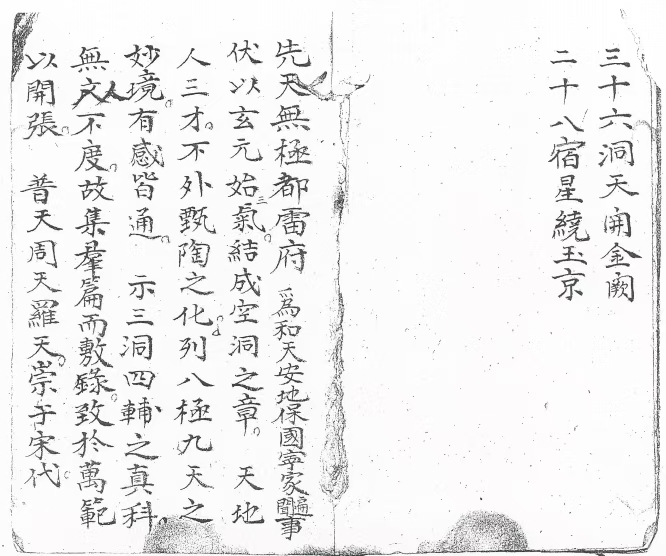 三十六洞天開金闕
二十八宿星繞玉京
先天無極都雷府 爲和天安地保國寧家遍聞事
伏以玄元始三氣。結成空洞之章。 天地
人三才。不外甄陶之化。列八極九天之
妙境。有感皆通。 示三洞四輔之真科。
無人不度。故集羣篇而敷錄。致於萬範
以開張。 普天周天羅天。崇于宋代。